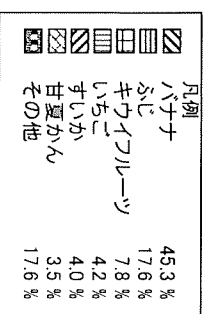 凡例
バナナ 45.3 %
ふじ 17.6 %
キウイフルーツ 7.8 %
いちご 4.2 %
すいか 4.0 %
甘夏かん 3.5 %
その他 17.6 %